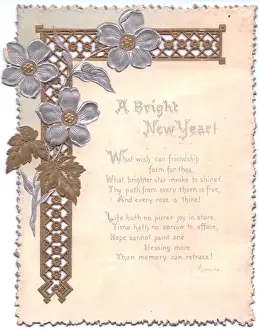 A Bright
New Year!
What wish can friendship
form for thee,
What brighter star invoke to shine?
Thy path from every thorn is free,
And every rose is thine!
Life hath no purer joy in store,
Time hath no sorrow to efface;
Hope cannot paint one
blessing more
Than memory can retrace!